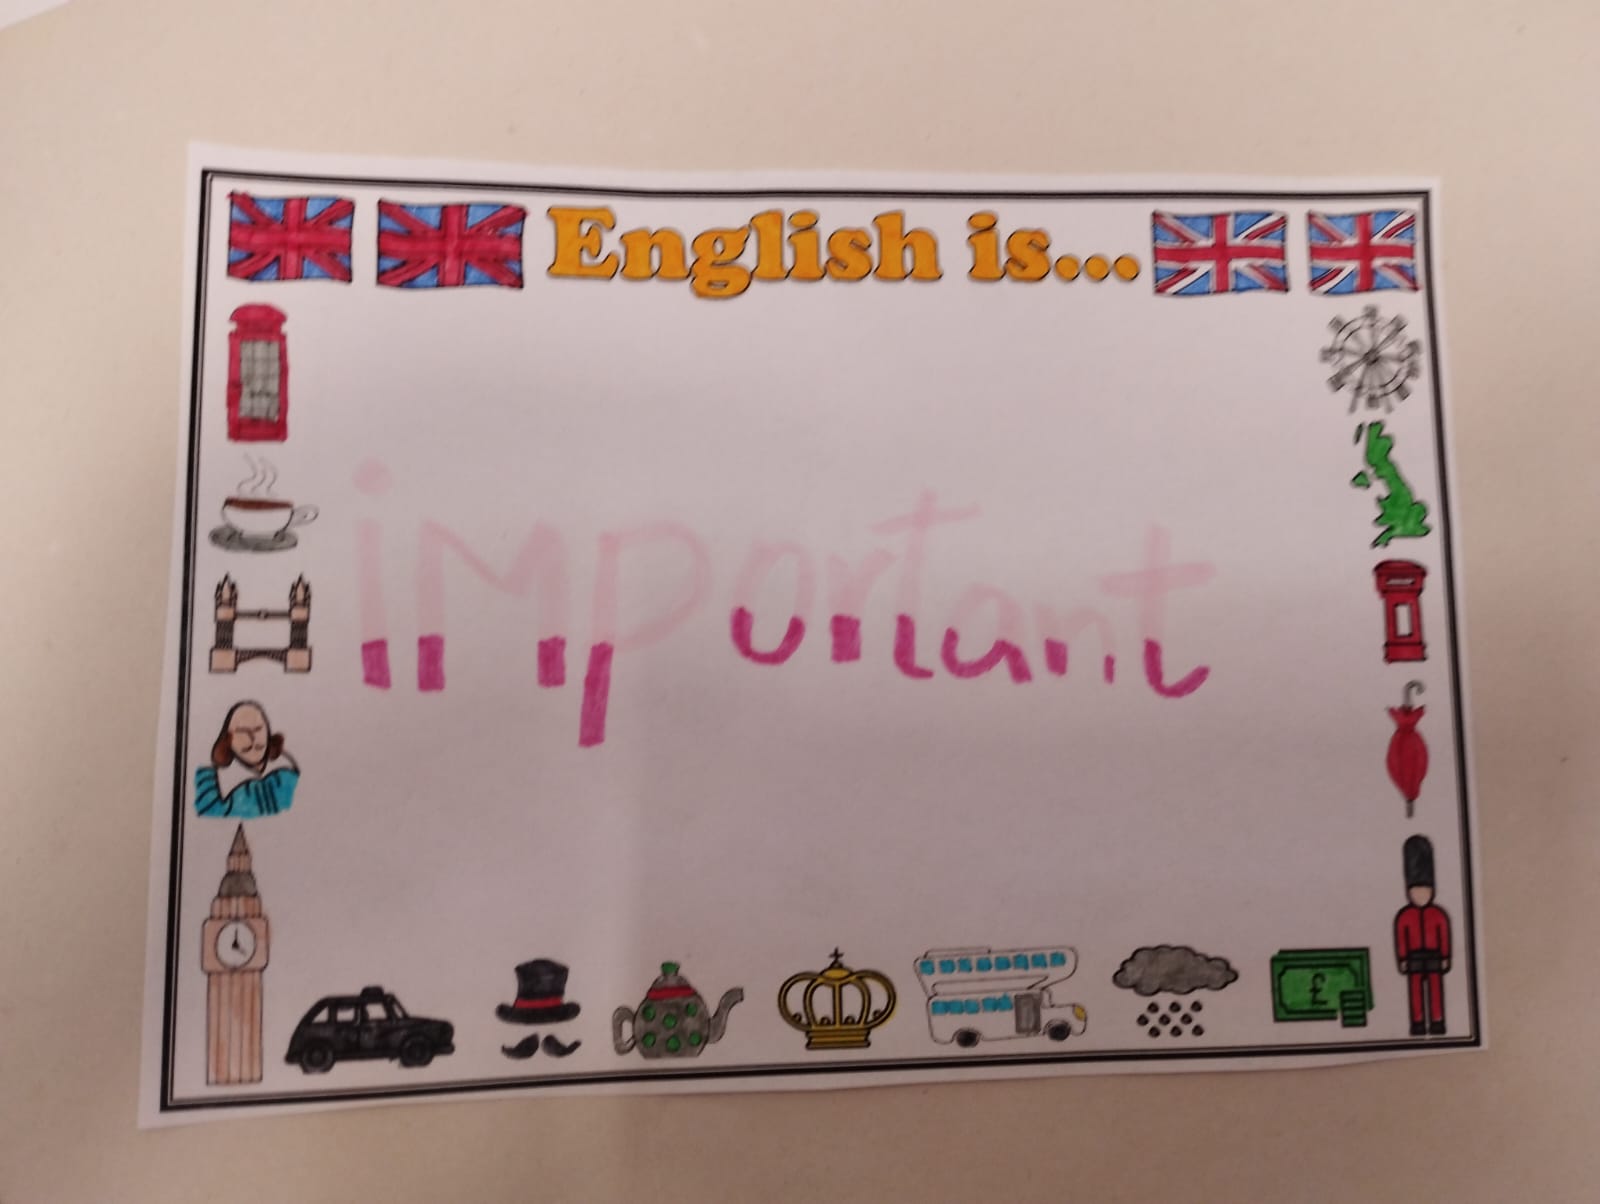 English is...
important
£